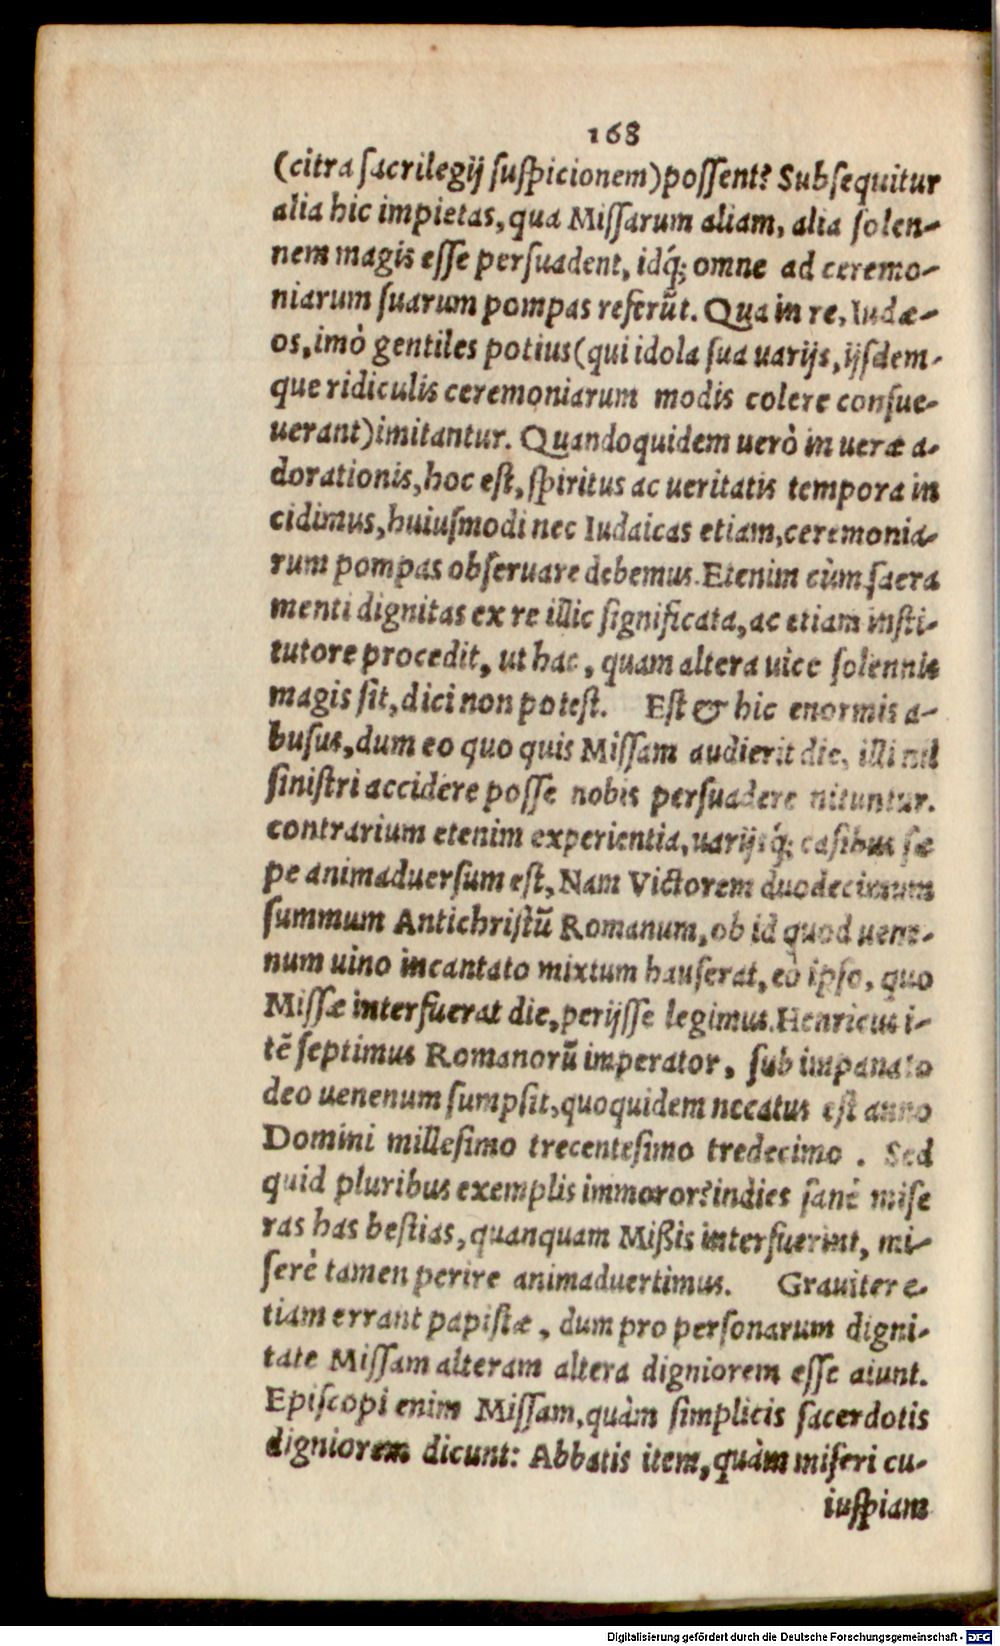 168
(citra ſacrilegij ſuſpicionem)poſſent? Subſequitur
alia hic impietas, qua Miſſarum aliam, alia ſolen-
nem magis eſſe perſuadent, idq́; omne ad ceremo-
niarum ſuarum pompas referūt. Qua in re, Iudæ-
os, imò gentiles potius(qui idola ſua uarijs, ijſdem-
que ridiculis ceremoniarum modis colere conſue-
uerant)imitantur. Quandoquidem uerò in ueræ a-
dorationis, hoc eſt, ſpiritus ac ueritatis tempora in
cidimus, huiuſmodi nec Iudaicas etiam, ceremonia-
rum pompas obſeruare debemus. Etenim cùm ſacra
menti dignitas ex re illic ſignificata, ac etiam inſti-
tutore procedit, ut hac, quam altera uice ſolennis
magis ſit, dici non poteſt. Eſt & hic enormis a-
buſus, dum eo quo quis Miſſam audierit die, illi nil
ſiniſtri accidere poſſe nobis perſuadere nituntur.
contrarium etenim experientia, uarijsq́; caſibus ſæ
pe animaduerſum eſt, Nam Victorem duodecimum
ſummum Antichriſtū Romanum, ob id quod uene-
num uino incantato mixtum hauſerat, eo ipſo, quo
Miſſæ interfuerat die, perijſſe legimus. Henricus i-
tē ſeptimus Romanorū imperator, ſub impanato
deo uenenum ſumpſit, quoquidem necatus eſt anno
Domini milleſimo trecenteſimo tredecimo. Sed
quid pluribus exemplis immoror? indies ſanè miſe
ras has beſtias, quanquam Mißis interfuerint, mi-
ſerè tamen perire animaduertimus. Grauiter e-
tiam errant papiſtæ, dum pro perſonarum digni-
tate Miſſam alteram altera digniorem eſſe aiunt.
Epiſcopi enim Miſſam, quàm ſimplicis ſacerdotis
digniorem dicunt: Abbatis item, quàm miſeri cu-
iuſpiam
Digitalisierung gefördert durch die Deutsche Forschungsgemeinschaft - DFG